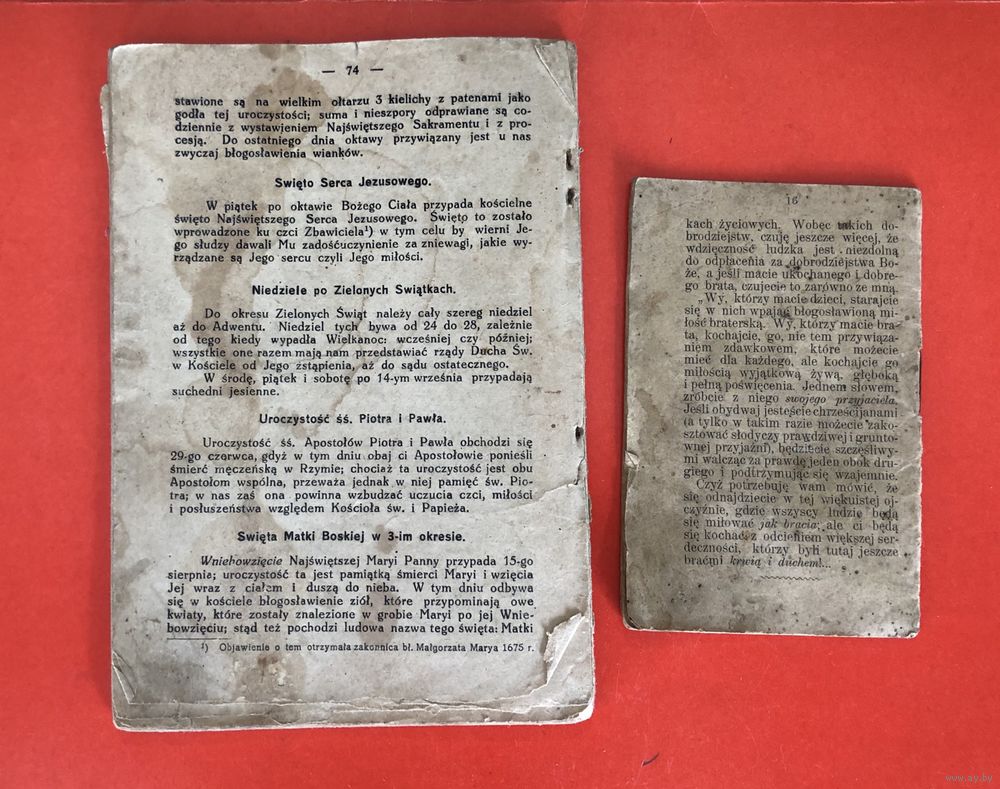 — 74 —
stawione są na wielkim ołtarzu 3 kielichy z patenami jako
godła tej uroczystości; suma i nieszpory odprawiane są co-
dziennie z wystawieniem Najświętszego Sakramentu i z pro-
cesją. Do ostatniego dnia oktawy przywiązany jest u nas
zwyczaj błogosławienia wianków.
Swięto Serca Jezusowego.
W piątek po oktawie Bożego Ciała przypada kościelne
święto Najświętszego Serca Jezusowego. Święto to zostało
wprowadzone ku czci Zbawiciela¹) w tym celu by wierni Je-
go słudzy dawali Mu zadośćuczynienie za zniewagi, jakie wy-
rządzane są Jego sercu czyli Jego miłości.
Niedziele po Zielonych Swiątkach.
Do okresu Zielonych Świąt należy cały szereg niedziel
aż do Adwentu. Niedziel tych bywa od 24 do 28, zależnie
od tego kiedy wypadła Wielkanoc: wcześniej czy później;
wszystkie one razem mają nam przedstawiać rządy Ducha Św.
w Kościele od Jego zstąpienia, aż do sądu ostatecznego.
W środę, piątek i sobotę po 14-ym września przypadają
suchedni jesienne.
Uroczystość śś. Piotra i Pawła.
Uroczystość śś. Apostołów Piotra i Pawła obchodzi się
29-go czerwca, gdyż w tym dniu obaj ci Apostołowie ponieśli
śmierć męczeńską w Rzymie; chociaż ta uroczystość jest obu
Apostołom wspólna, przeważa jednak w niej pamięć św. Pio-
tra; w nas zaś ona powinna wzbudzać uczucia czci, miłości
i posłuszeństwa względem Kościoła św. i Papieża.
Swięta Matki Boskiej w 3-im okresie.
Wniebowzięcie Najświętszej Maryi Panny przypada 15-go
sierpnia; uroczystość ta jest pamiątką śmierci Maryi i wzięcia
Jej wraz z ciałem i duszą do nieba. W tym dniu odbywa
się w kościele błogosławienie ziół, które przypominają owe
kwiaty, które zostały znalezione w grobie Maryi po jej Wnie-
bowzięciu; stąd też pochodzi ludowa nazwa tego święta: Matki
¹) Objawienie o tem otrzymała zakonnica bł. Małgorzata Marya 1675 r.
16
kach życiowych. Wobec takich do-
brodziejstw, czuję jeszcze więcej, że
wdzięczność ludzka jest niezdolną
do odpłacenia za dobrodziejstwa Bo-
że, a jeśli macie ukochanego i dobre-
go brata, czujecie to zarówno ze mną.
„Wy, którzy macie dzieci, starajcie
się w nich wpajać błogosławioną mi-
łość braterską. Wy, którzy macie bra-
ta, kochajcie, go, nie tem przywiąza-
niem zdawkowem, które możecie
mieć dla każdego, ale kochajcie go
miłością wyjątkową żywą, głęboką
i pełną poświęcenia. Jednem słowem,
zróbcie z niego swojego przyjaciela.
Jeśli obydwaj jesteście chrześcijanami
(a tylko w takim razie możecie zako-
sztować słodyczy prawdziwej i grunto-
wnej przyjaźni), będziecie szczęśliwy-
mi walcząc za prawdę jeden obok dru-
giego i podtrzymując się wzajemnie.
Czyż potrzebuję wam mówić, że
się odnajdziecie w tej wiekuistej oj-
czyźnie, gdzie wszyscy ludzie będą
się miłować jak bracia; ale ci będą
się kochać z odcieniem większej ser-
deczności, którzy byli tutaj jeszcze
braćmi krwią i duchem!...
www.ay.by